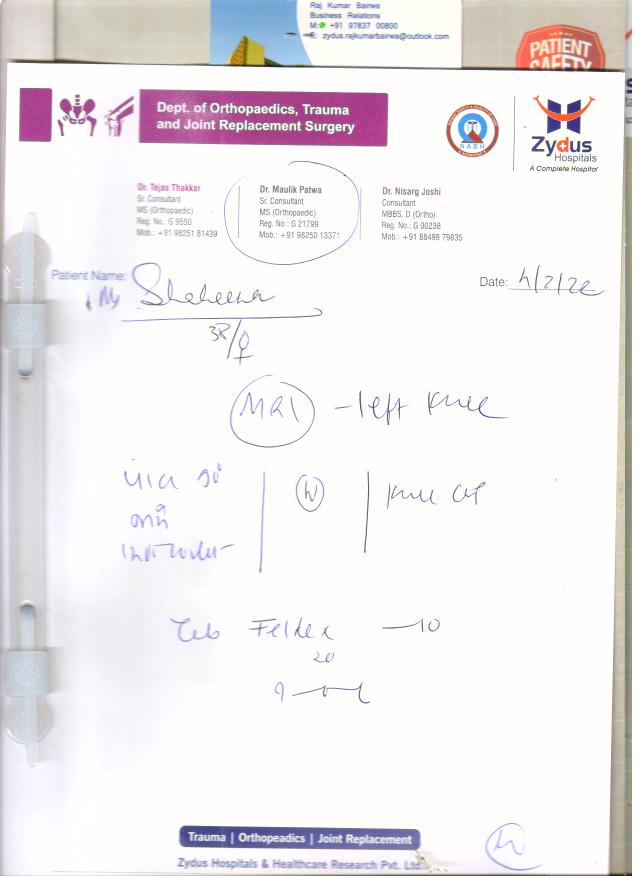 Raj Kumar Bairwa
Business Relations
M: +91 97837 00800
E: zydus.rajkumarbairwa@outlook.com
PATIENT
SAFETY
Dept. of Orthopaedics, Trauma
and Joint Replacement Surgery
NABH
Zydus
Hospitals
A Complete Hospital
Dr. Tejas Thakkar
Sr. Consultant
MS (Orthopaedic)
Reg. No.: G 9550
Mob.: +91 98251 81439
Dr. Maulik Patwa
Sr. Consultant
MS (Orthopaedic)
Reg. No.: G 21799
Mob.: +91 98250 13371
Dr. Nisarg Joshi
Consultant
MBBS, D (Ortho)
Reg. No.: G 00238
Mob.: +91 88498 79835
Patient Name:
Date: 4/2/22
38/♀
MRI - left knee
Knee
Tab Feldex — 10
20
Trauma | Orthopeadics | Joint Replacement
Zydus Hospitals & Healthcare Research Pvt. Ltd.